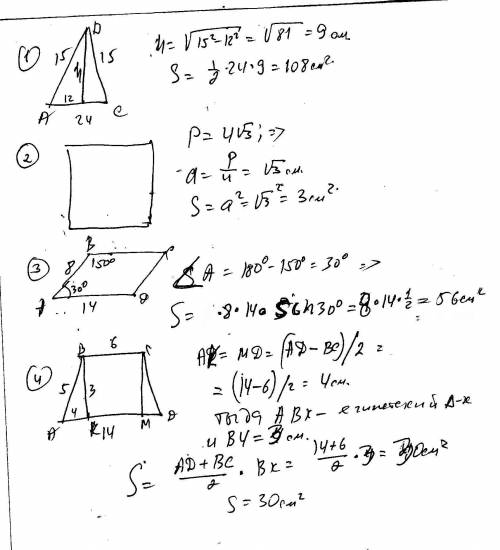 ① 15 15 h 12 24 A B C
h = √15²−12² = √81 = 9 см.
S = 1/2 · 24 · 9 = 108 см²
②
P = 4√3; =>
a = P/4 = √3 см.
S = a² = √3² = 3 см².
③ B 8 150° 30° 14 A D
∠A = 180° − 150° = 30° =>
S = 8 · 14 · sin 30° = 8 · 14 · 1/2 = 56 см²
④ B 6 C 5 3 4 A K 14 M D
AK = MD = (AD − BC)/2 =
= (14−6)/2 = 4 см.
тогда ABK – египетский Δ-к
и BK = 3 см.
S = AD + BC/2 · BK = 14+6/2 · 3 = 30 см²
S = 30 см²